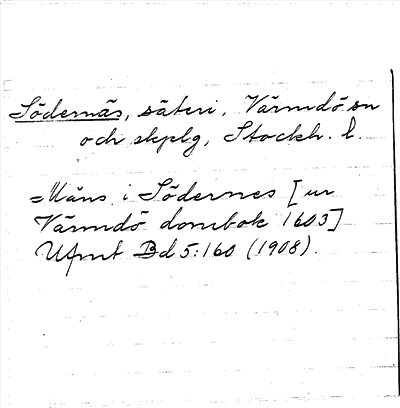 Södernäs, säteri, Värmdö sn
och skplg, Stockh. l.
= Måns i Södernes [ur
Värmdö dombok 1603]
Ufmt Bd 5:160 (1908).